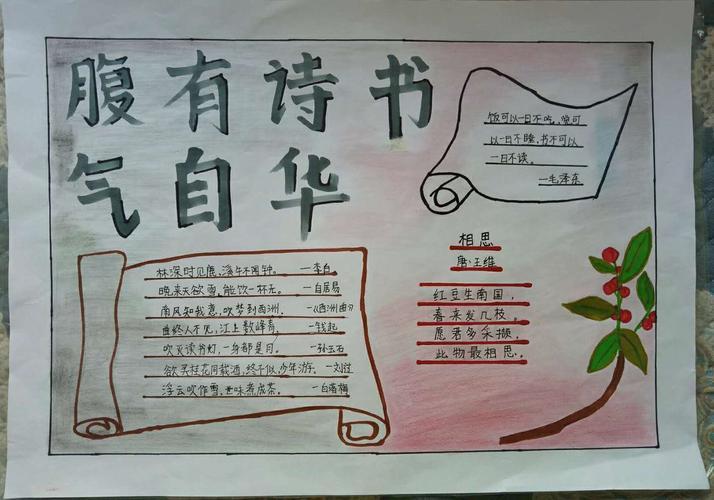 腹有诗书
气自华
饭可以一日不吃,觉可
以一日不睡,书不可以
一日不读。
—毛泽东
相思
唐·王维
红豆生南国,
春来发几枝。
愿君多采撷,
此物最相思。
林深时见鹿,溪午不闻钟。 —李白
晚来天欲雪,能饮一杯无。 —白居易
南风知我意,吹梦到西洲。 —《西洲曲》
曲终人不见,江上数峰青。 —钱起
吹灭读书灯,一身都是月。 —孙玉石
欲买桂花同载酒,终不似,少年游。—刘过
浮云吹作雪,世味煮成茶。 —白音梅